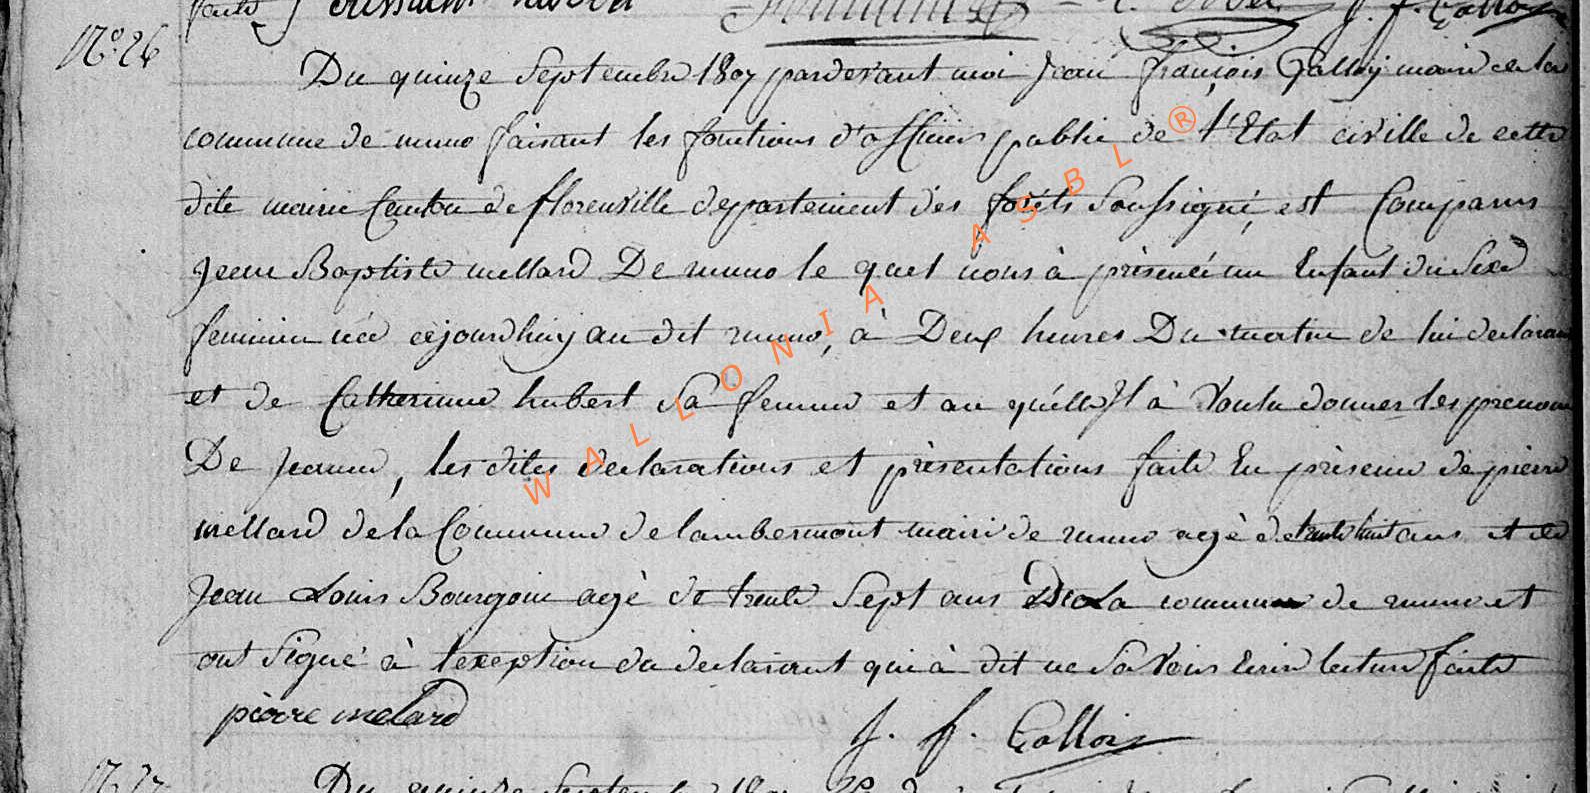 faite J
J. f. Gallois
N° 26
Du quinze Septembre 1807 pardevant moi Jean françois Galloy maire de la
commune de muno faisant les fonctions d'officier public de l'Etat civille de cette
dite mairie Canton de florenville departement des foréts Soussigné, est Comparus
Jean Baptiste mellard De muno le quel nous à présenté un Enfant du Sexe
feminin née cejourdhuy au dit muno, à Deux heures Du matin de lui declarant
et de Catherinne hubert Sa femme et au quélle Jl à Voulu donner les prenoms
De Jeanne, les dites declarations et présentations faite En présence de pierre
mellard de la Commune de lambermont mairie de muno agè de trente huit ans et de
Jean Louis Bourgoin agè de trente Sept ans De La commune de muno et
ont Signé à lexeption du declarant qui à dit ne Savoir Ecrire lecture faite
pierre melard
J. f. Gallois
N° 27
Du quinze Septembre
WALLONIA ASBL ®